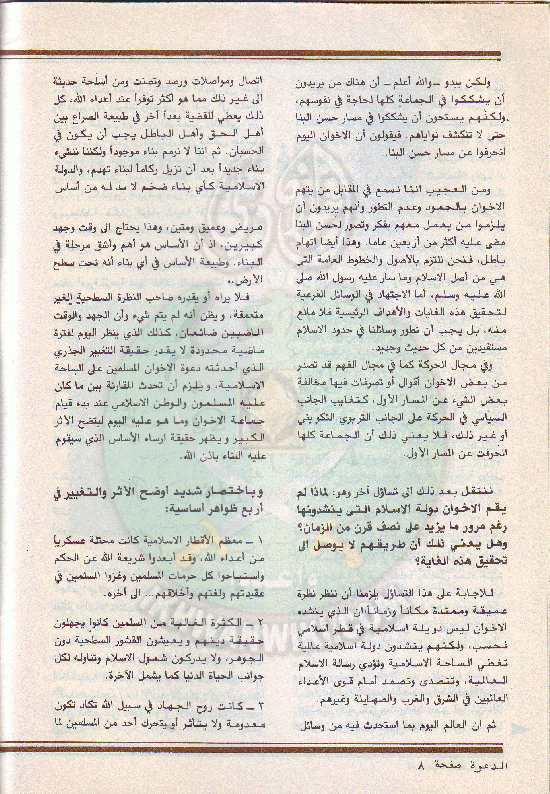 ولكن يبدو ــ والله أعلم ــ أن هناك من يريدون
أن يشككوا في الجماعة كلها لحاجة في نفوسهم،
ولكنهم يستحون أن يشككوا في مسار حسن البنا
حتى لا تنكشف نواياهم. فيقولون أن الاخوان اليوم
انحرفوا عن مسار حسن البنا.
ومن العجيب اننا نسمع في المقابل من يتهم
الاخوان بالجمود وعدم التطور وأنهم يريدون أن
يلزموا من يعمل معهم بفكر وتصور لحسن البنا
مضى عليه أكثر من أربعين عاما. وهذا أيضا اتهام
باطل، فنحن نلتزم بالأصول والخطوط العامة التي
هي من أصل الاسلام وما سار عليه رسول الله صلى
الله عليه وسلم، أما الاجتهاد في الوسائل الفرعية
لتحقيق هذه الغايات والأهداف الرئيسية فلا مانع
منه، بل يجب أن نطور وسائلنا في حدود الاسلام
مستفيدين من كل حديث وجديد.
وفي مجال الحركة كما في مجال الفهم قد تصدر
من بعض الاخوان أقوال أو تصرفات فيها مخالفة
بعض الشيء عن المسار الأول، كتغليب الجانب
السياسي في الحركة على الجانب التربوي التكويني
أو غير ذلك، فلا يعني ذلك أن الجماعة كلها
انحرفت عن المسار الأول.
ننتقل بعد ذلك الى تساؤل آخر وهو: لماذا لم
يقم الاخوان دولة الاسلام التي ينشدونها
رغم مرور ما يزيد على نصف قرن من الزمان؟
وهل يعني ذلك أن طريقهم لا يوصل الى
تحقيق هذه الغاية؟
للاجابة على هذا التساؤل يلزمنا أن ننظر نظرة
عميقة وممتدة مكاناً وزماناً ان الذي ينشده
الاخوان ليس دويلة اسلامية في قطر اسلامي
فحسب، ولكنهم ينشدون دولة اسلامية عالمية
تغطي الساحة الاسلامية وتؤدي رسالة الاسلام
العالمية، وتتصدى وتصمد أمام قوى الأعداء
العالميين في الشرق والغرب والصهاينة وغيرهم.
ثم ان العالم اليوم بما استحدث فيه من وسائل
اتصال ومواصلات ورصد وتصنت ومن أسلحة حديثة
الى غير ذلك مما هو أكثر توفراً عند أعداء الله، كل
ذلك يعطي للقضية بعداً آخر في طبيعة الصراع بين
أهل الحق وأهل الباطل يجب أن يكون في
الحسبان. ثم اننا لا نرمم بناء موجوداً ولكننا ننشىء
بناء جديداً بعد أن نزيل ركاماً لبناء تهدم، والدولة
الاسلامية كأي بناء ضخم لا بد له من أساس
عريض وعميق ومتين، وهذا يحتاج الى وقت وجهد
كبيرين، اذ أن الأساس هو أهم وأشق مرحلة في
البناء. وطبيعة الأساس في أي بناء أنه تحت سطح
الأرض..
فلا يراه أو يقدره صاحب النظرة السطحية الغير
متعمقة، ويظن أنه لم يتم شيء وأن الجهد والوقت
الماضيين ضائعان، كذلك الذي ينظر اليوم لفترة
ماضية محدودة لا يقدر حقيقة التغيير الجذري
الذي أحدثته دعوة الاخوان المسلمين على الساحة
الاسلامية، ويلزم أن تحدث المقارنة بين ما كان
عليه المسلمون والوطن الاسلامي عند بدء قيام
جماعة الاخوان وما هو عليه اليوم ليتضح الأثر
الكبير ويظهر حقيقة ارساء الأساس الذي سيقوم
عليه البناء باذن الله.
وباختصار شديد أوضح الأثر والتغيير في
أربع ظواهر أساسية:
١ ــ معظم الأقطار الاسلامية كانت محتلة عسكرياً
من أعداء الله، وقد أبعدوا شريعة الله عن الحكم
واستباحوا كل حرمات المسلمين وغزوا المسلمين في
عقيدتهم ولغتهم وأخلاقهم... الى آخره.
٢ ــ الكثرة الغالبة من المسلمين كانوا يجهلون
حقيقة دينهم ويعيشون القشور السطحية دون
الجوهر، ولا يدركون شمول الاسلام وتناوله لكل
جوانب الحياة الدنيا كما يشمل الآخرة.
٣ ــ كانت روح الجهاد في سبيل الله تكاد تكون
معدومة ولا يتأثر أو يتحرك أحد من المسلمين لما
الدعوة صفحة ٨